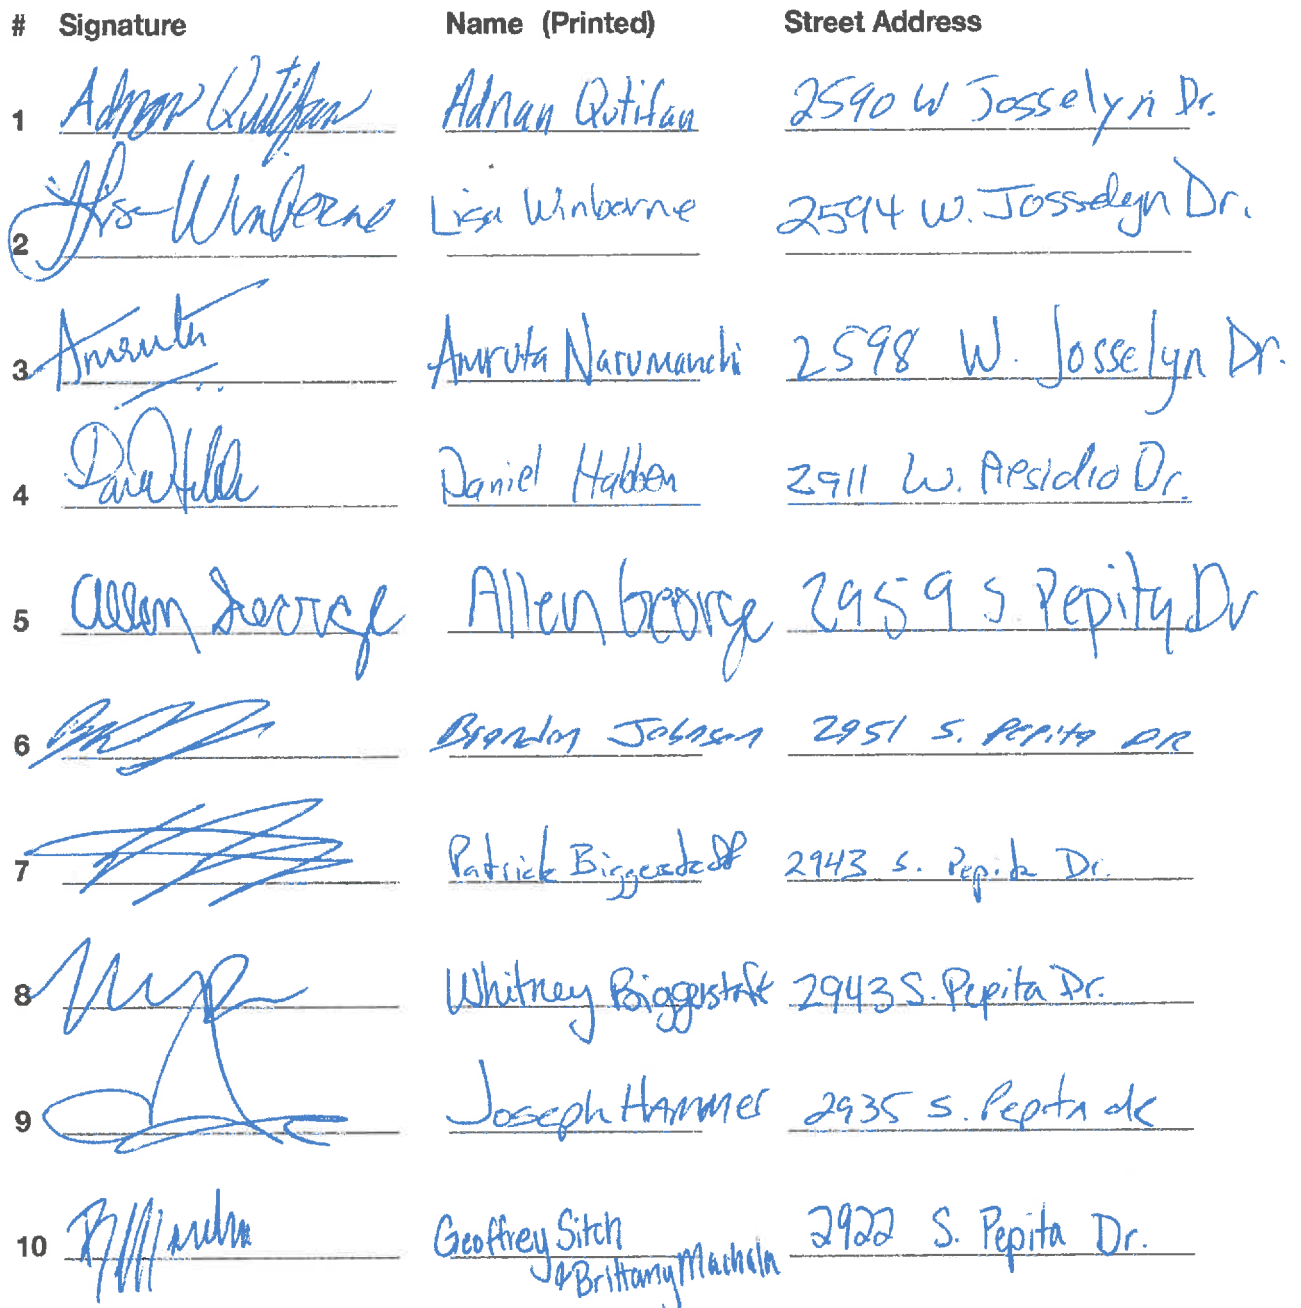 # Signature Name (Printed) Street Address
1 Adnan Qutifan Adnan Qutifan 2590 W Josselyn Dr.
2 Lisa Winborne Lisa Winborne 2594 W. Josselyn Dr.
3 Amruta Amruta Narumanchi 2598 W. Josselyn Dr.
4 Daniel Habben 2911 W. Dr.
5 Allen George Allen George 2959 S Pepita Dr
6 Brandon Johnson 2951 S. Pepita DR
7 Patrick Biggerstaff 2943 S. Pepita Dr.
8 Whitney Biggerstaff 2943 S. Pepita Dr.
9 Joseph Hammer 2935 S. Pepita dr
10 Geoffrey Sitch 2922 S. Pepita Dr.
& Brittany